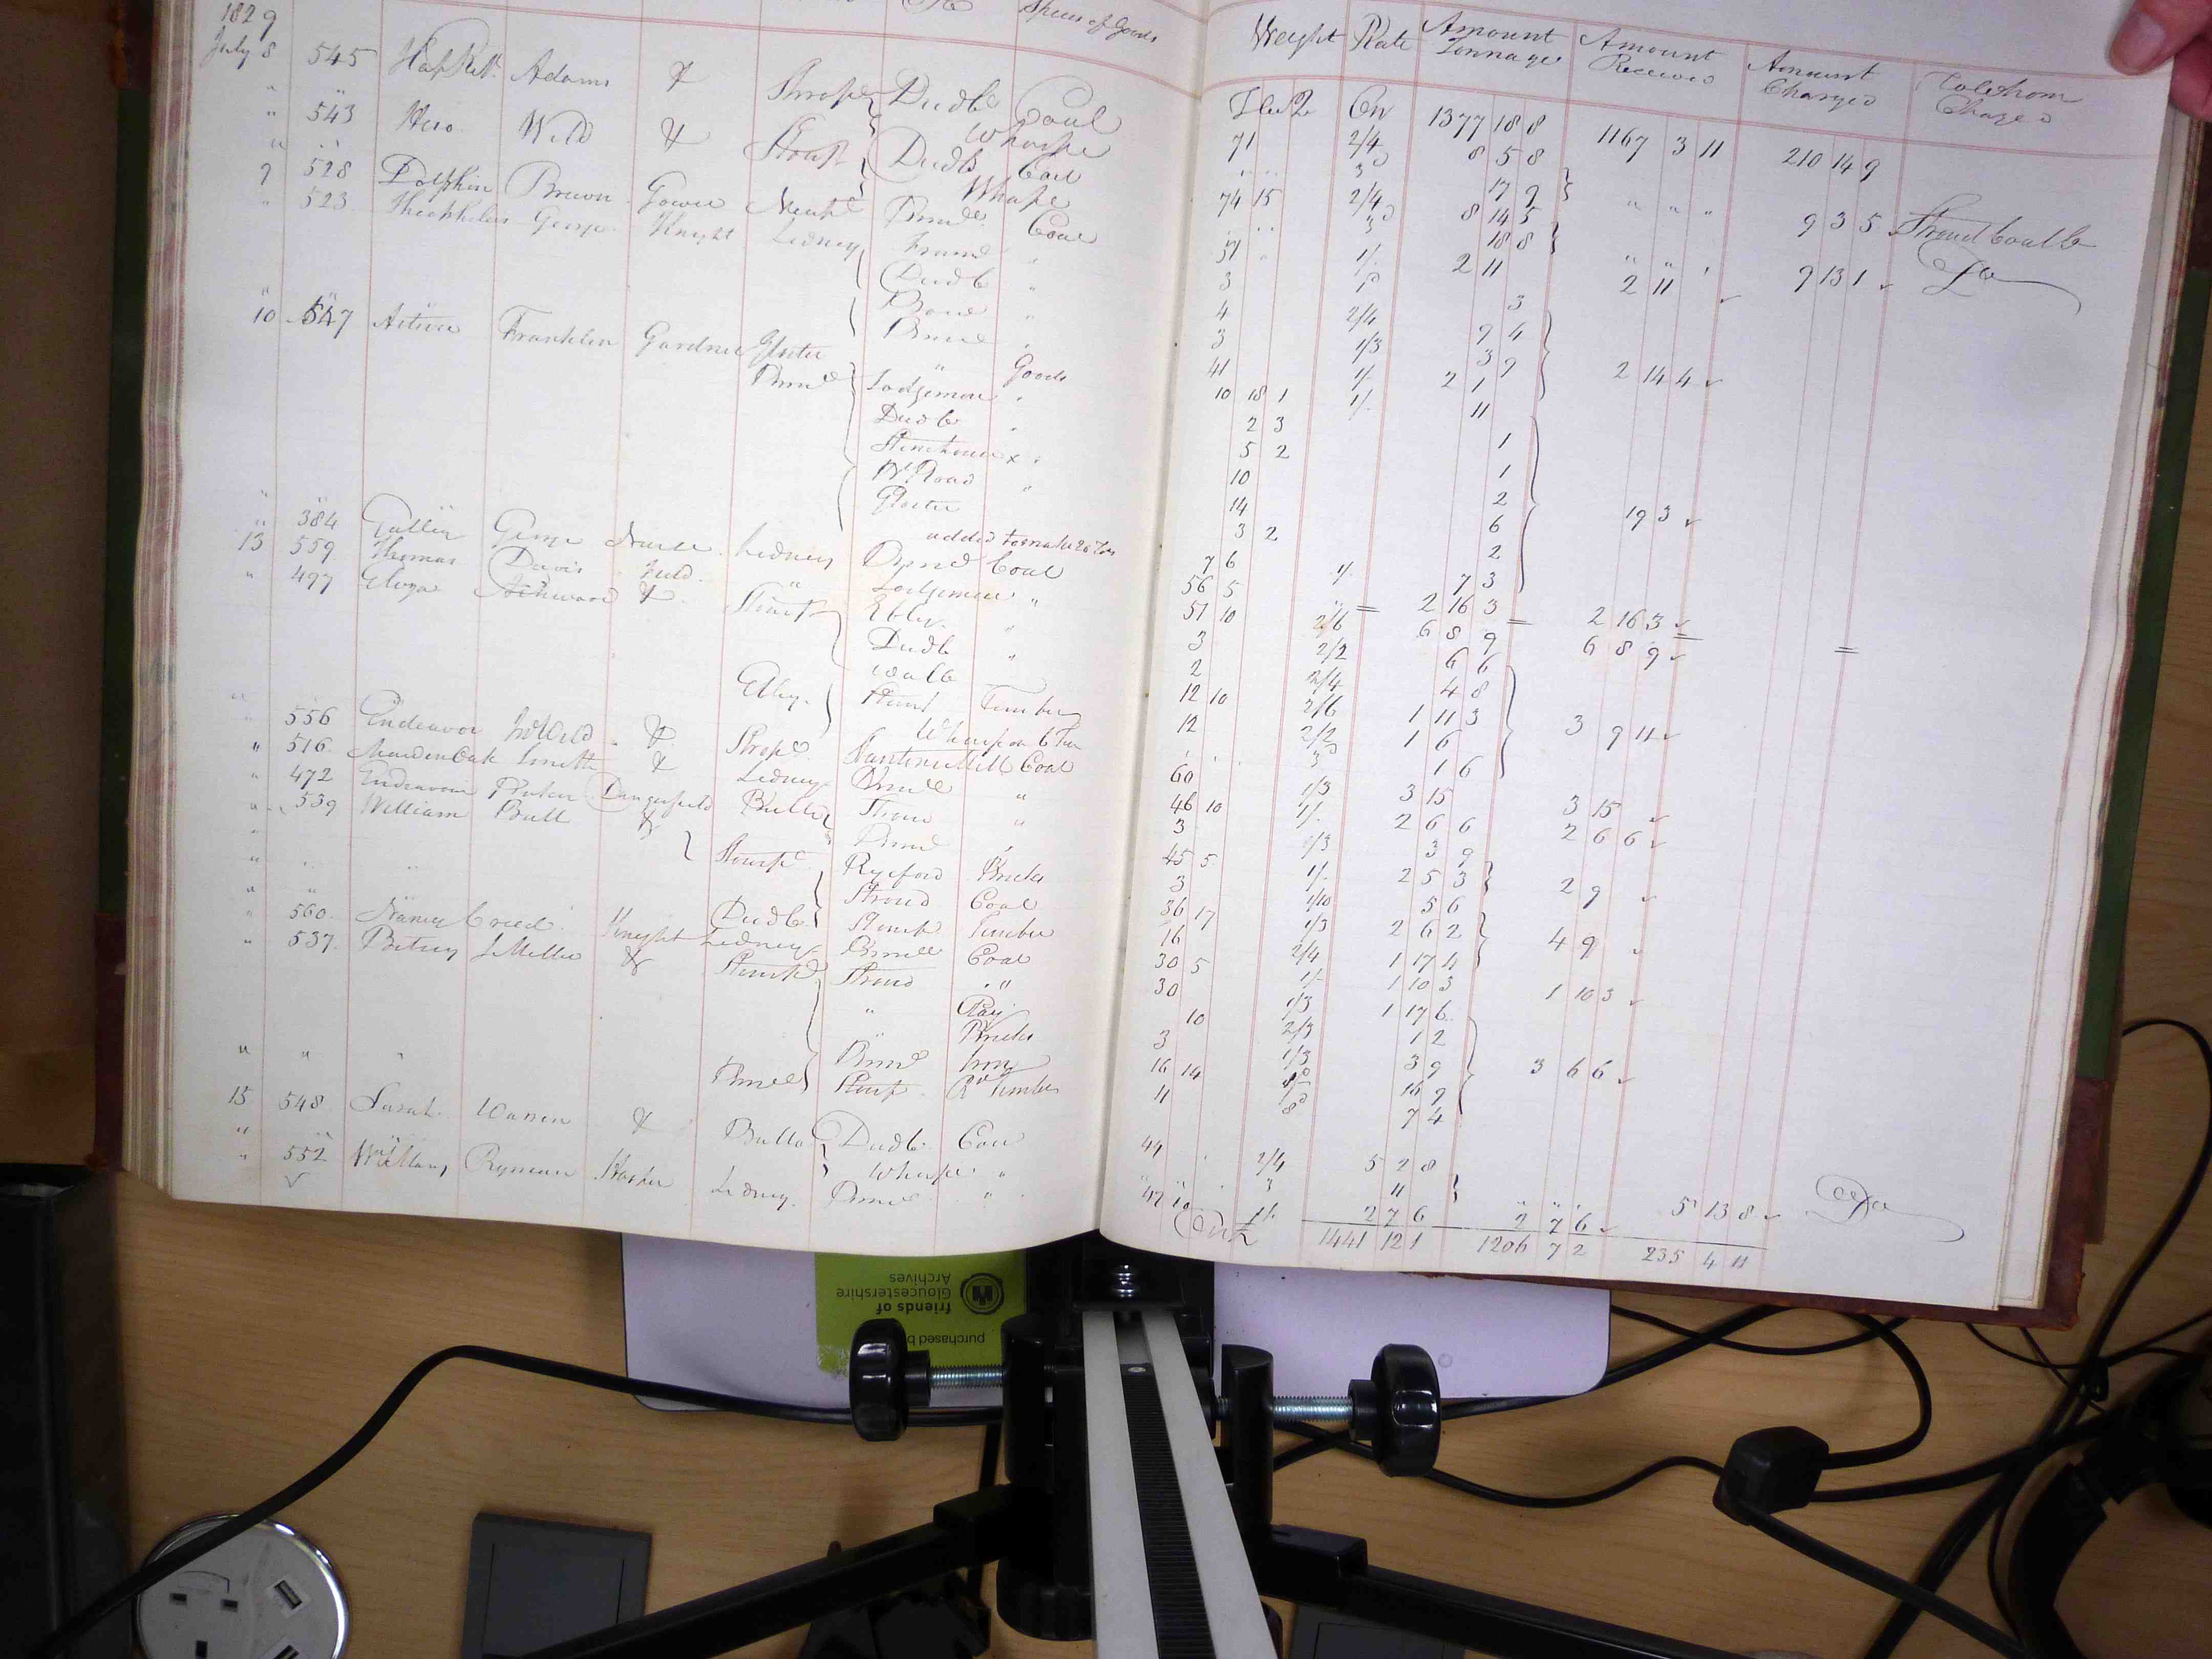 1829
To Species of Goods Weight Rate Amount Tonnage Amount Received Amount Charged To whom Charged
T C Q On 1377 18 8 1167 3 11 210 14 9
July 8 545 Adams & Shrops Dudb Coal 71 2/4 8 5 8
" " Wharfe 3d 17 9 " " " 9 3 5 Stroud Coal Co
" 543 Hero Wild & Stourp Dudb Coal 74 15 2/4 8 14 5
" " Wharfe 3d 18 8 " " " 9 13 1 Do
9 528 Dolphin Brown Gower Newpt Brimd Coal 51 1/- 2 11 2 11
" 523 Theophilus George Knight Lidney Frome " 3 1d 3
Dudb " 4 2/4 9 4
3 1/3 3 9
Brimd " 41 1/- 2 1 2 14 4
10 547 Active Franklin Gardner Gloster " Goods 10 18 1 1/- 11
Brimd Lodgemore " 2 3 1
Dudb " 5 2 1
Stonehouse x " 10 2
Road " 14 6
Gloster 3 2 2 19 3
" " added to make 20 Tons 7 6 1/ 7 3
" 384 George Nurse Lidney Brimd Coal 56 5 " 2 16 3 2 16 3
13 559 Thomas Davis Field " Lodgemore " 51 10 2/6 6 8 9 6 8 9
" 497 Eliza & Stourp Ebley " 3 2/2 6 6
Dudb " 2 2/4 4 8
Wallb 12 10 2/6 1 11 3
Ebley Stourp Timber 12 2/2 1 6 3 9 11
" Wharf on 6 Tons 3d 1 6
" 556 Endeavor Wild & Shrops Mill Coal 60 1/3 3 15 3 15
" 516 Maiden Oak Smith & Lidney Brimd " 46 10 1/- 2 6 6 2 6 6
" 472 Endeavour Dangerfield Bullo Stroud " 3 1/3 3 9
Brimd " 45 5 1/- 2 5 3 2 9
" 539 William Bull & Stourp Ryeford Bricks 3 1/10 5 6
Stroud Coal 36 17 1/3 2 6 2
" " Dudb Stourp Timber 16 2/4 1 17 4 4 9
" 560 Nancy Creed Knight Lidney Brimd Coal 30 5 1/- 1 10 3 1 10 3
" 537 Betsey J Miller & Stourp Stroud " 30 1/3 1 17 6
" 10 2/3 1 2
" Bricks 3 1/3 3 9
Brimd Iron 16 14 16 9 3 6 6
" " Brimd Stourp Timber 11 8d 7 4
15 548 Sarah Warren & Bullo Dudb Coal 44 2/4 5 2 8
" " Wharfe " 3 11 " " " 5 13 8 Do
" 552 William Ryman Harper Lidney Brimd " 47 10 1/- 2 7 6 2 7 6
1441 12 1 1206 7 2 235 4 11
purchased b
friends of
Gloucestershire
Archives